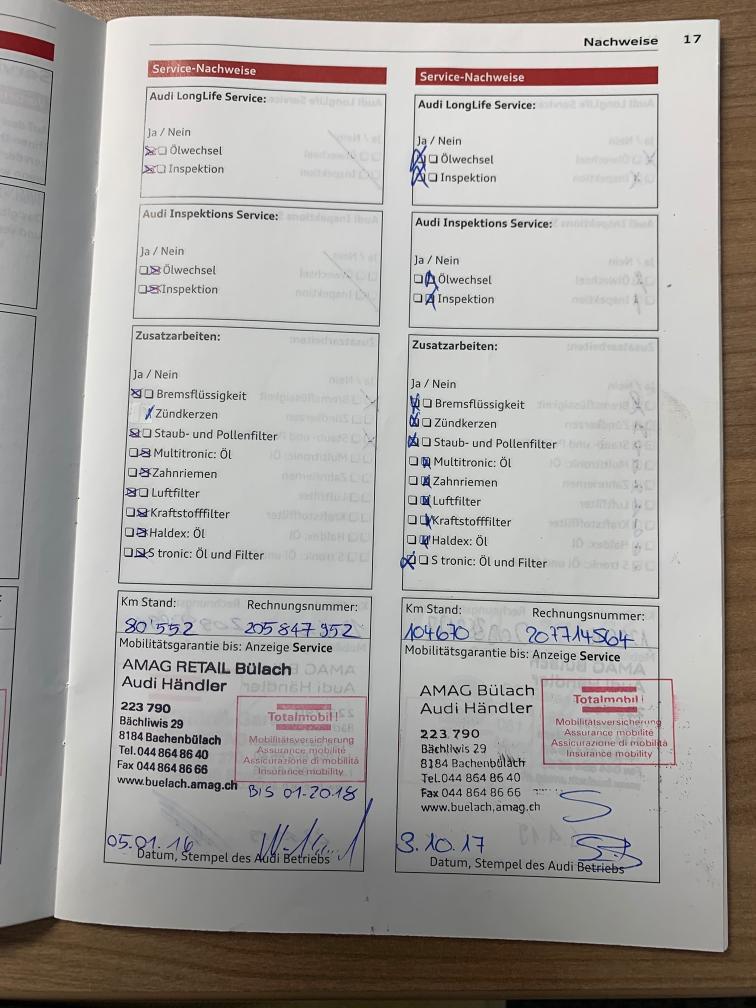 Nachweise 17
Service-Nachweise
Audi LongLife Service:
Ja / Nein
Ölwechsel
Inspektion
Audi Inspektions Service:
Ja / Nein
Ölwechsel
Inspektion
Zusatzarbeiten:
Ja / Nein
Bremsflüssigkeit
Zündkerzen
Staub- und Pollenfilter
Multitronic: Öl
Zahnriemen
Luftfilter
Kraftstofffilter
Haldex: Öl
S tronic: Öl und Filter
Km Stand: Rechnungsnummer:
80'552 205847952
Mobilitätsgarantie bis: Anzeige Service
AMAG RETAIL Bülach
Audi Händler
223 790
Bächliwis 29
8184 Bachenbülach
Tel. 044 864 86 40
Fax 044 864 86 66
www.buelach.amag.ch
Totalmobil!
Mobilitätsversicherung
Assurance mobilité
Assicurazione di mobilità
Insurance mobility
BIS 01.2018
05.01.16
Datum, Stempel des Audi Betriebs
Service-Nachweise
Audi LongLife Service:
Ja / Nein
Ölwechsel
Inspektion
Audi Inspektions Service:
Ja / Nein
Ölwechsel
Inspektion
Zusatzarbeiten:
Ja / Nein
Bremsflüssigkeit
Zündkerzen
Staub- und Pollenfilter
Multitronic: Öl
Zahnriemen
Luftfilter
Kraftstofffilter
Haldex: Öl
S tronic: Öl und Filter
Km Stand: Rechnungsnummer:
104670 207714564
Mobilitätsgarantie bis: Anzeige Service
AMAG Bülach
Audi Händler
223 790
Bächliwis 29
8184 Bachenbülach
Tel. 044 864 86 40
Fax 044 864 86 66
www.buelach.amag.ch
Totalmobil!
Mobilitätsversicherung
Assurance mobilité
Assicurazione di mobilità
Insurance mobility
3.10.17
Datum, Stempel des Audi Betriebs